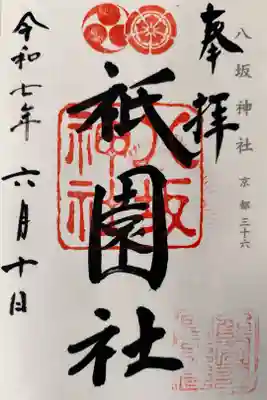 奉拝
八坂神社
京都三十六
祇園社
八坂神社
令和七年六月十日